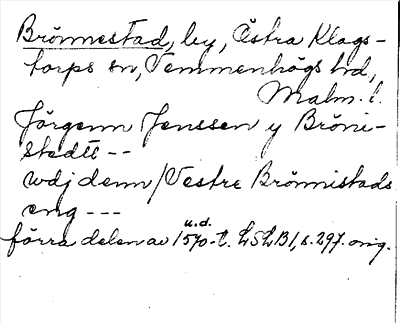 Brönnestad, by, Östra Klags-
torps sn, Vemmenhögs hd,
Malm. l.
Jörgenn Jenssen y Bröni-
stedtt --
wdj denn / Vestre Brönnistads
eng ---
u.d.
förra delen av 1570-t. LSLB1, s. 297. orig.